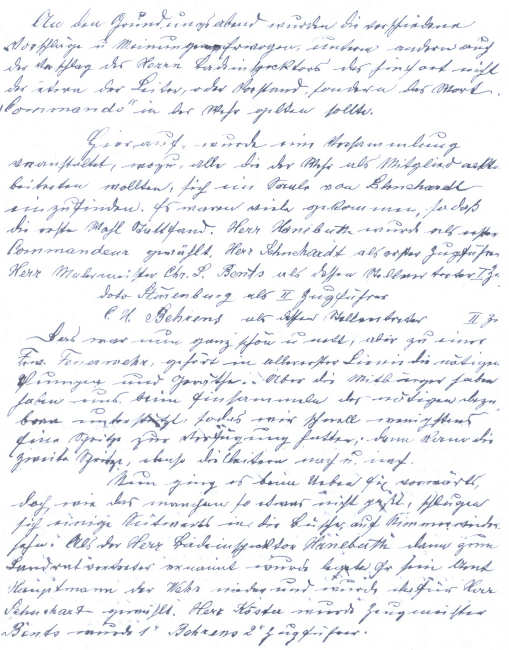 An den Gründungsabend wurden die verschiedene
Vorschläge u Meinungen erwogen, unterm andern auch
der Vorschlag des Herrn Badeinspecktors das hinfort nicht
der etwa der Leiter, oder Vorstand, sondern das Wort
"Commando" in der Wehr gelten sollte.
Hierauf, wurde eine Versammlung
veranstaltet, wozu, alle die der Wehr als Mitglied
beitreten wollten, sich im Saale von Lehnhardt
einzufinden. Es waren viele gekommen, sodaß
die erste Wahl Stattfand. Herr Hanebuth wurde als erster
Commandeur gewählt, Herr Lehnhardt als erster Zugführer
Herr Malermeister Chr. L. Bents als dessen Stellvertreter I Z.
dato Stürenburg als II Zugführer
C. U. Behrens als dessen Stellvertreter II Z.
Das war nun ganz schön u nett, aber zu einer
Frw. Feuerwehr, gehört in allererster Lienie die nötigen
Übungen und Geräthe. Aber die Mitbürger haben
haben uns beim Einsammeln des nötigen dazu
unterstützt, sodas wir schnell wenigstens
eine Spritze zur Verfügung hatten; dann kam die
zweite Spritze, ebenso die Leitern nach u. nach.
Nun ging es beim Ueben für vorwärts,
doch, wie das manchen so etwas nicht paßt, schlugen
sich einige Seitwerts in die Büsche, auf Nimmerwieder
sehn! Als der Herr Badeinspektor Hanebuth dann zum
Landratvertreter ernannt wurde legte Er sein Amt
Hauptmann der Wehr nieder und wurde dafür Herr
Lehnhart gewählt. Herr Köster wurde Zeugmeister
Bents wurde 1ʳ Behrens 2ʳ Zugführer.